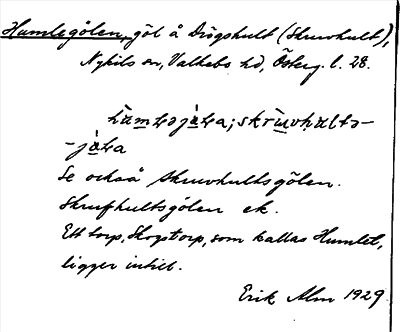 Humlegölen, göl å Drögshult (Skruvhult),
Nykils sn, Valkebo hd, Österg. l. 28.
Se också Skruvhultsgölen.
Skrufhultsgölen ek.
Ett torp, Skogstorp, som kallas Humlet,
ligger intill.
Erik Alm 1929.